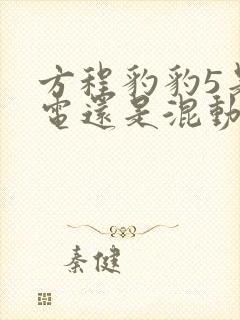 方程豹豹5
電還是混動
秦健